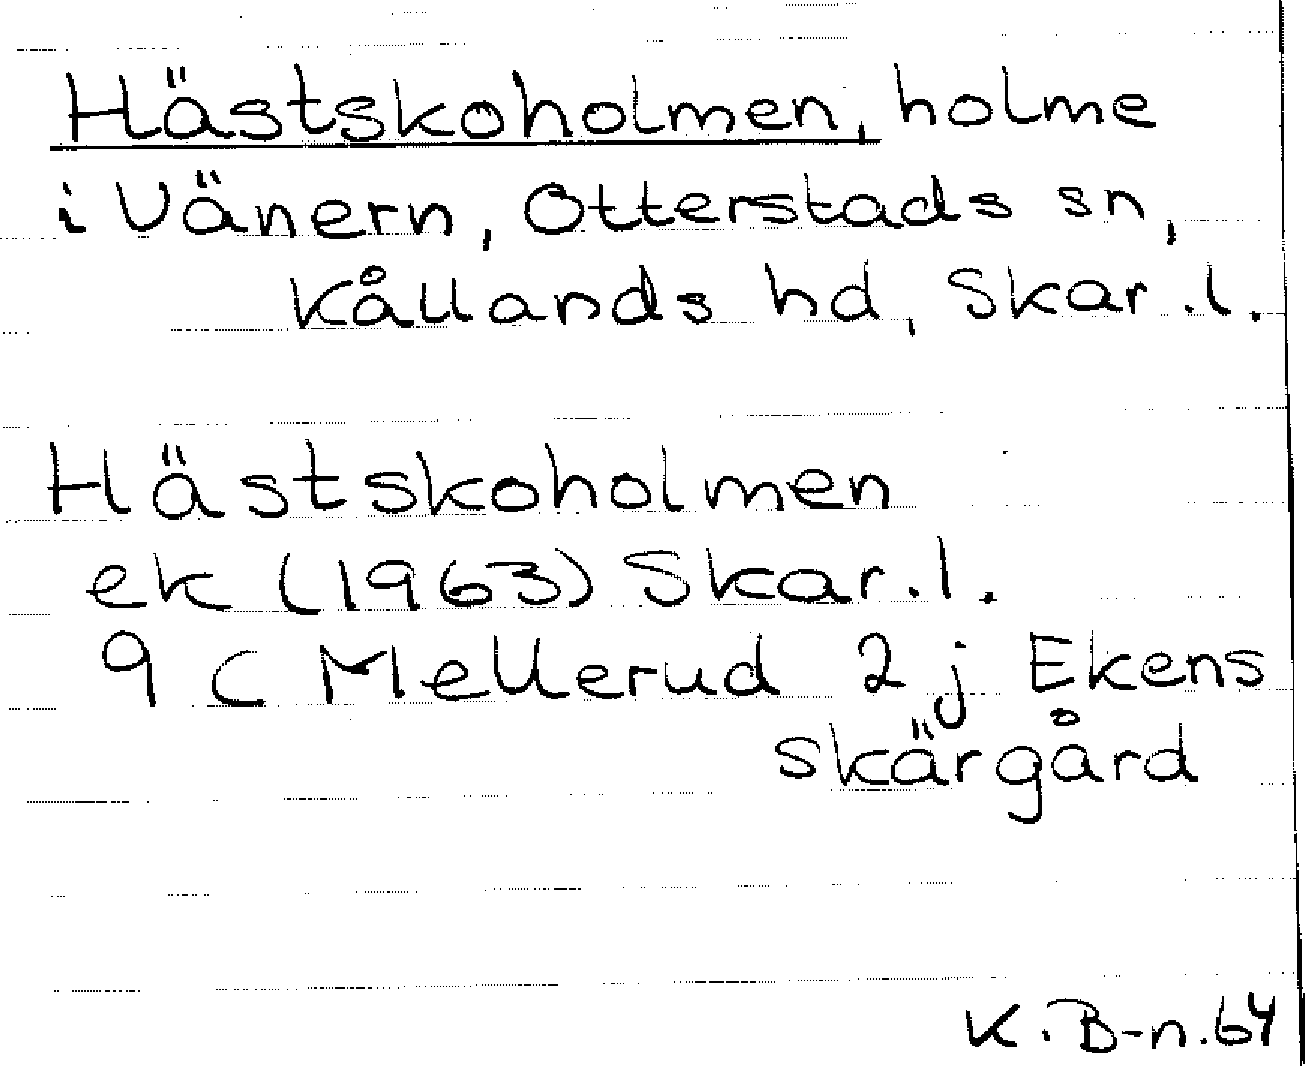 Hästskoholmen, holme
i Vänern, Otterstads sn,
Kållands hd, Skar.l.
Hästskoholmen
ek (1963) Skar.l.
9 C Mellerud 2 j Ekens
skärgård
K.B-n.64